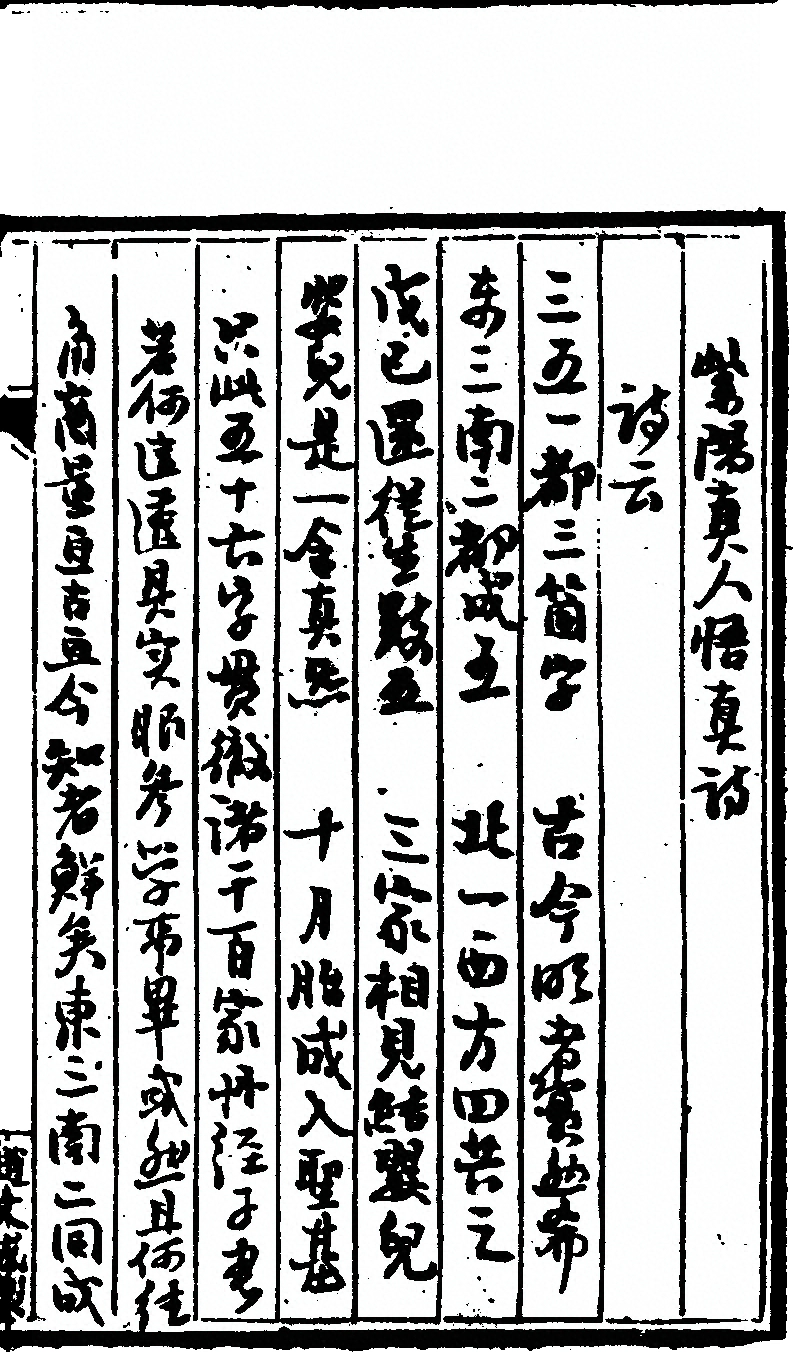 紫陽真人悟真詩
詩云
三五一都三箇字　古今明者實然希
東三南二都成五　北一西方四共之
戊己還從生數五　三家相見結嬰兒
嬰兒是一含真炁　十月胎成入聖基
只此五十六字貫徹諸千百家丹經子書
若何這還具实眼參学事畢或然且何經
商量亘古亘今知者鮮矣東三南二同成